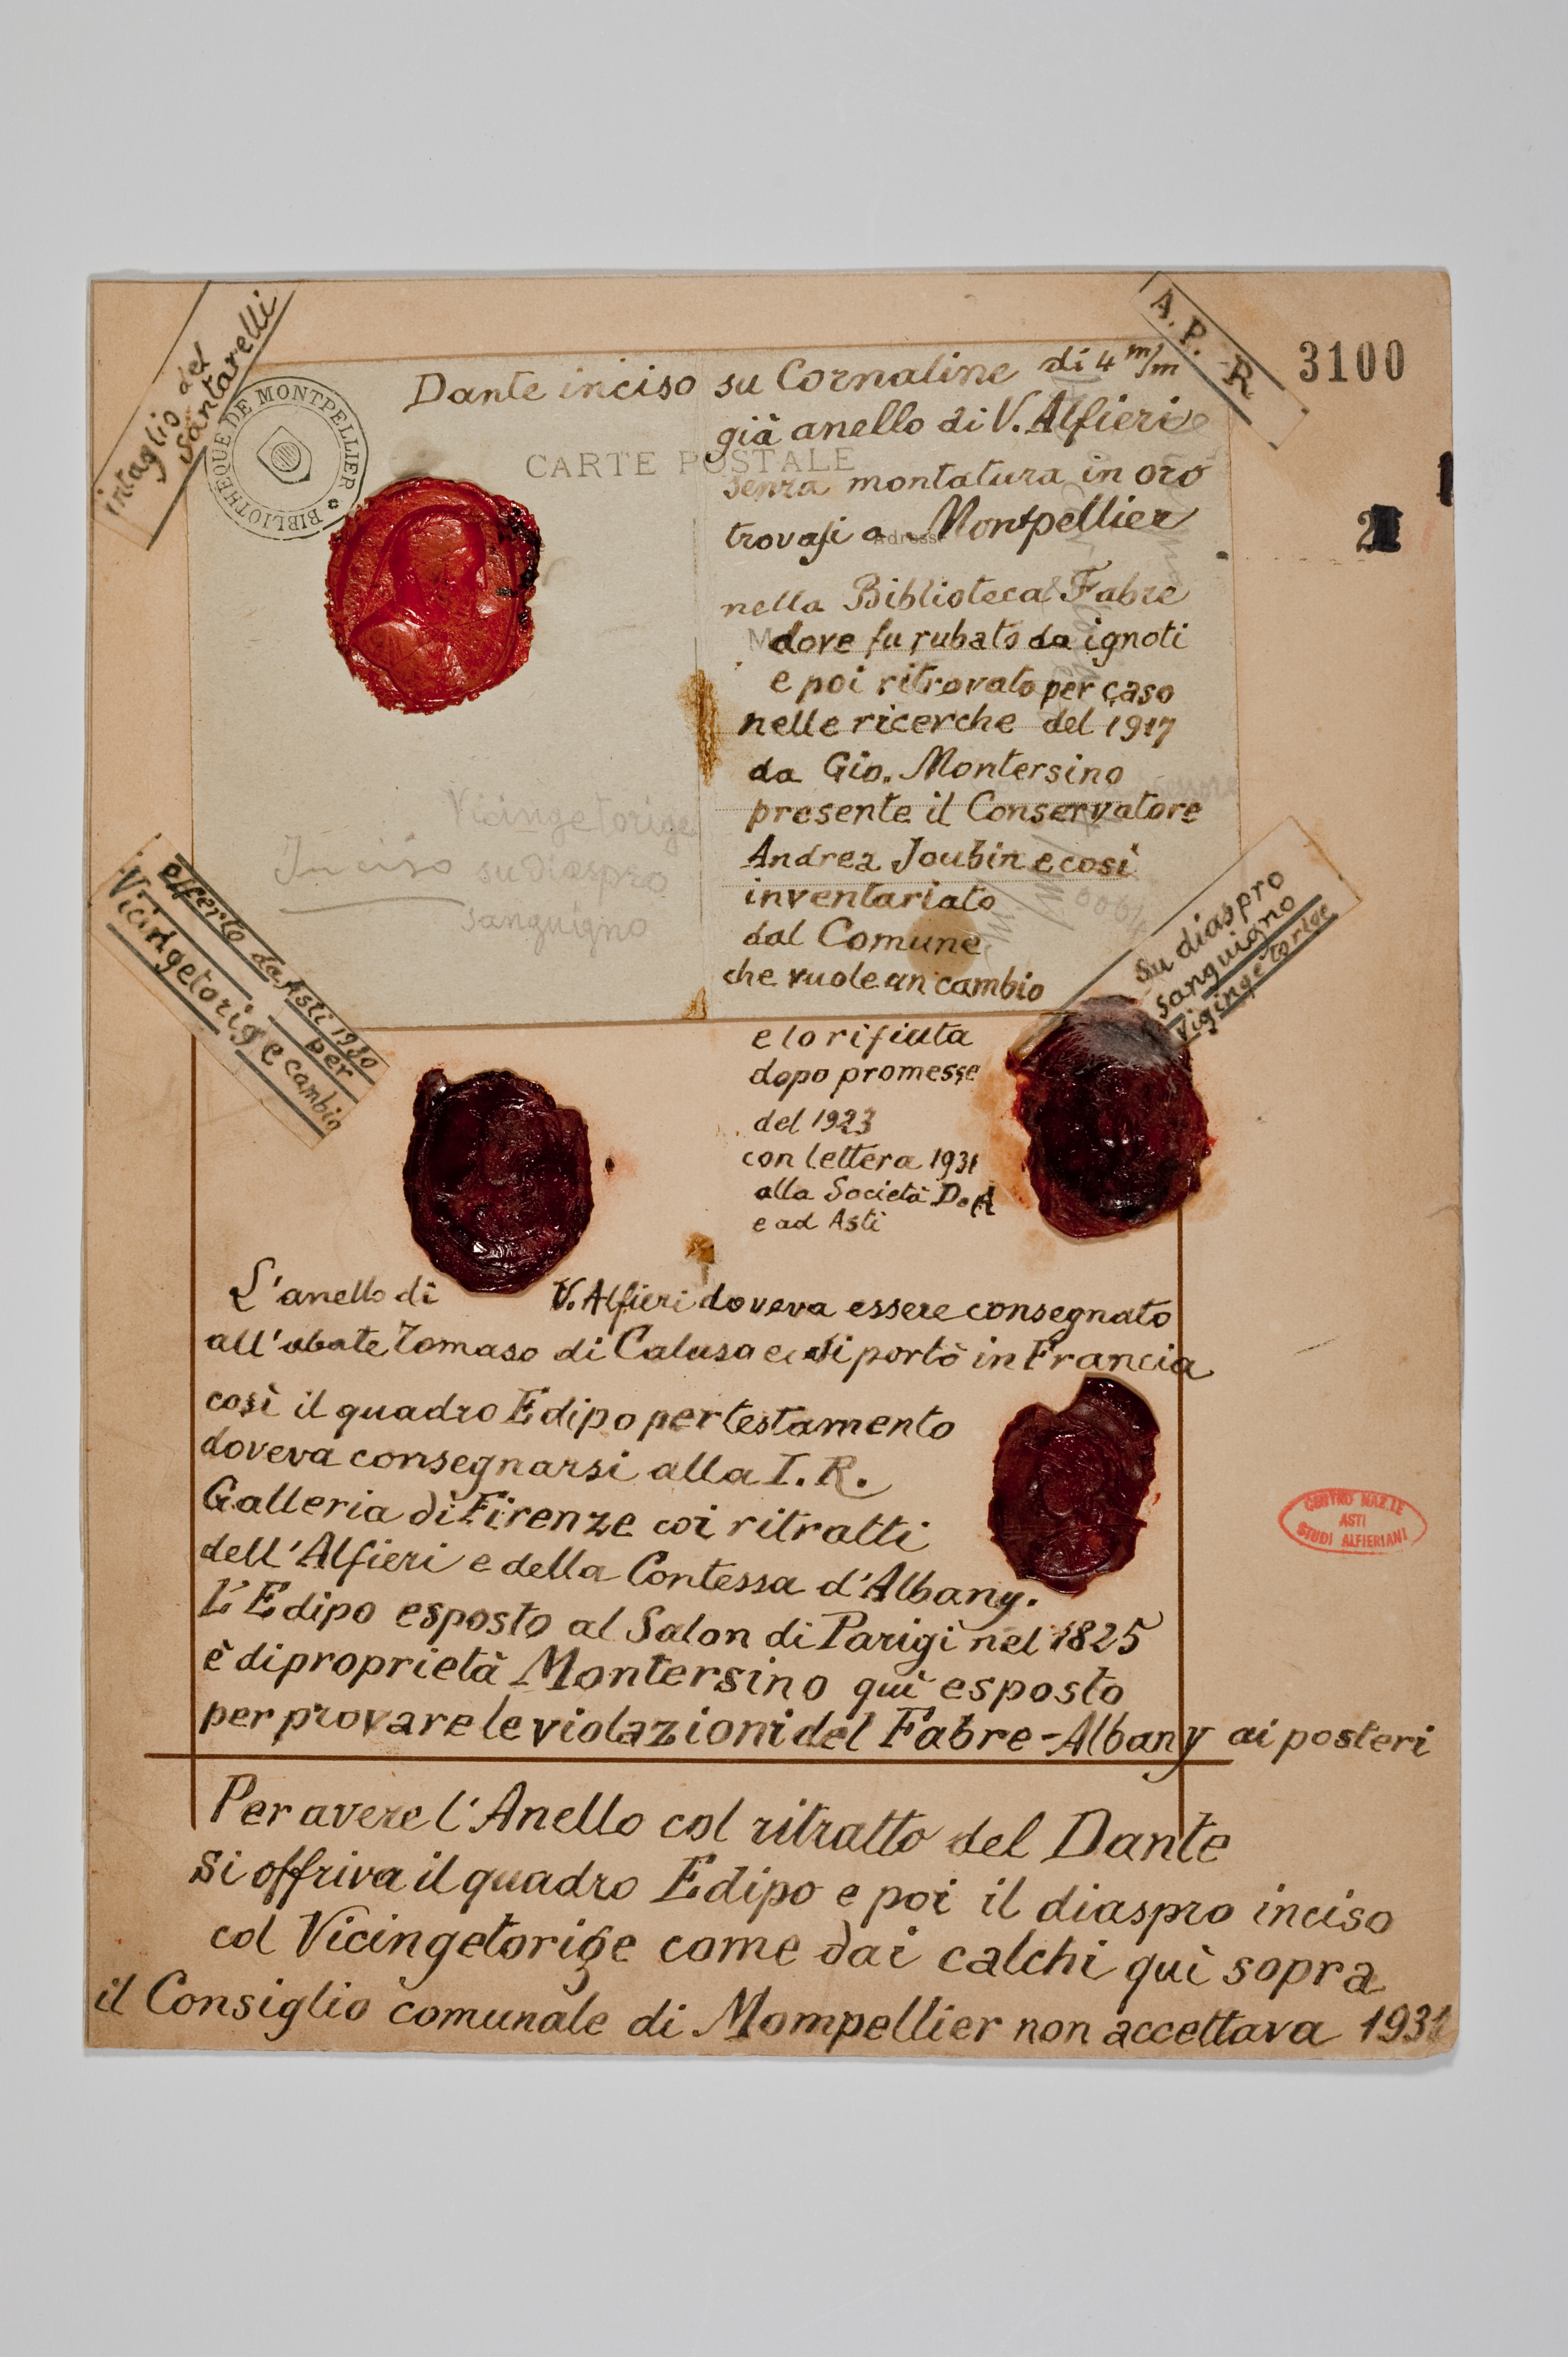 intaglio del
Santarelli
BIBLIOTHEQUE DE MONTPELLIER
A. P. - R
3100
2
Dante inciso su Cornaline di 4 m/m
già anello di V. Alfieri
CARTE POSTALE
senza montatura in oro
trovasi a Montpellier
nella Biblioteca Fabre
dove fu rubato da ignoti
e poi ritrovato per caso
nelle ricerche del 1917
da Gio. Montersino
presente il Conservatore
Andrea Joubin e così
inventariato
dal Comune
che vuole un cambio
Vicingetorige
Inciso su diaspro
sanguigno
offerto da Asti 1930
per
Vicingetorige cambio
Su diaspro
sanguigno
Vigingetorige
e lo rifiuta
dopo promesse
del 1923
con lettera 1931
alla Società D. A
e ad Asti
L'anello di V. Alfieri doveva essere consegnato
all'abate Tomaso di Calusa e si portò in Francia
così il quadro Edipo per testamento
doveva consegnarsi alla I. R.
Galleria di Firenze coi ritratti
dell'Alfieri e della Contessa d'Albany.
L'Edipo esposto al Salon di Parigi nel 1825
è di proprietà Montersino quì esposto
per provare le violazioni del Fabre-Albany ai posteri
CENTRO NAZ.LE
ASTI
STUDI ALFIERIANI
Per avere l'Anello col ritratto del Dante
si offriva il quadro Edipo e poi il diaspro inciso
col Vicingetorige come dai calchi quì sopra
il Consiglio comunale di Mompellier non accettava 1931